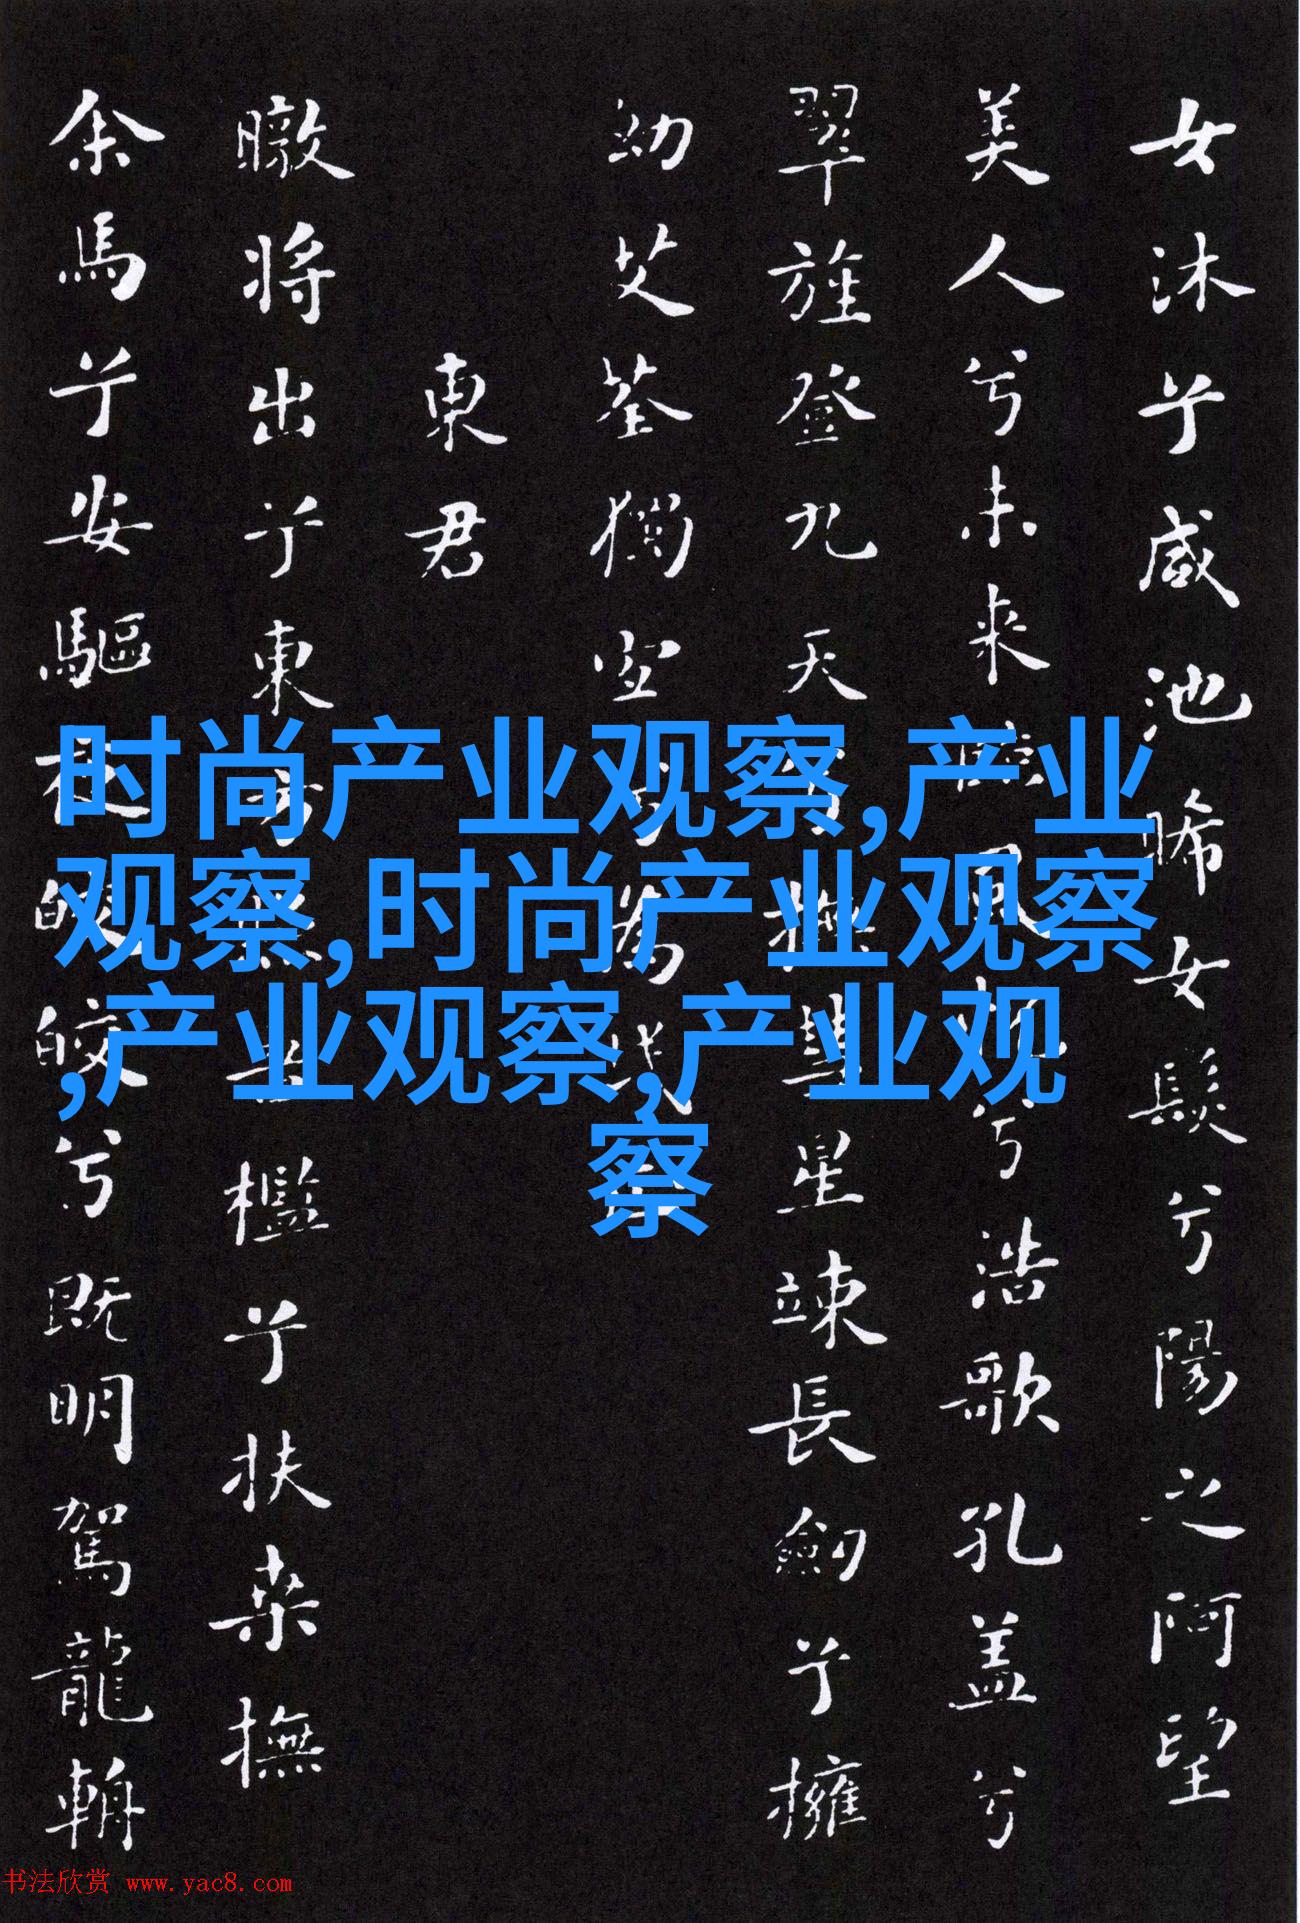 女沐兮咸池晞女髮兮陽之阿望
美人兮未来臨風怳兮浩歌孔盖兮
翠旌登九天兮撫彗星竦長劍兮擁
幼艾荃獨宜兮為民正
東君
暾将出兮東方照吾檻兮扶桑撫
余馬兮安驅夜皎皎兮既明駕龍輈
时尚产业观察,产业
观察,时尚产业观察
,产业观察,产业观
察
书法欣赏 www.yac8.com